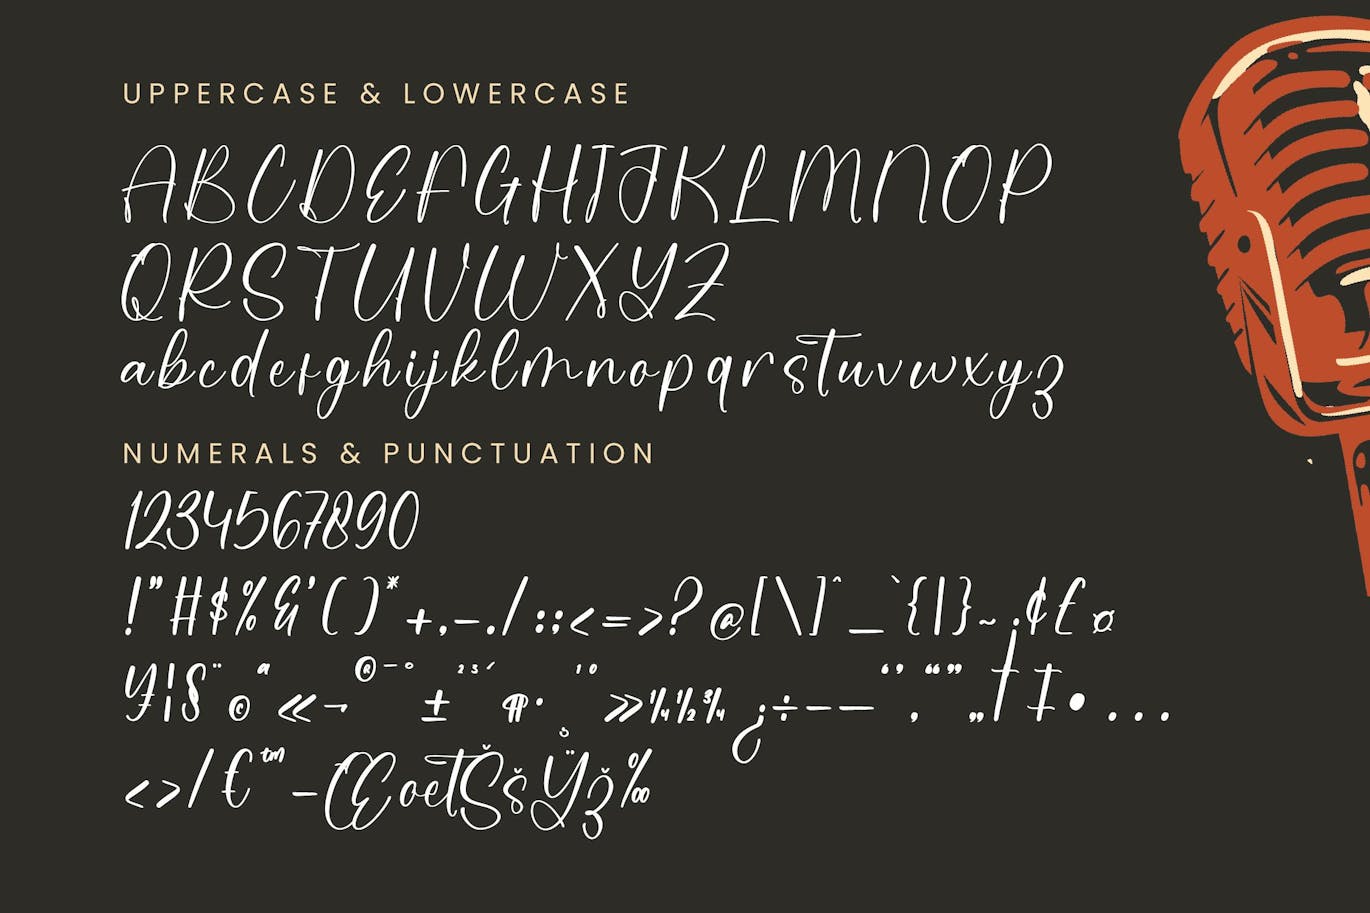 UPPERCASE & LOWERCASE
ABCDEFGHIJKLMNOP
QRSTUVWXYZ
abcdefghijklmnopqrstuvwxyz
NUMERALS & PUNCTUATION
1234567890
!"#$%&'()*+,-./:;<=>?@[\]^_`{|}~¡¢£¤
¥¦§¨©ª«¬®¯°±²³´¶·¸¹º»¼½¾¿÷–—‘’‚“”„†‡•...
‹›⁄€™−ŒœŁŠšŸž‰